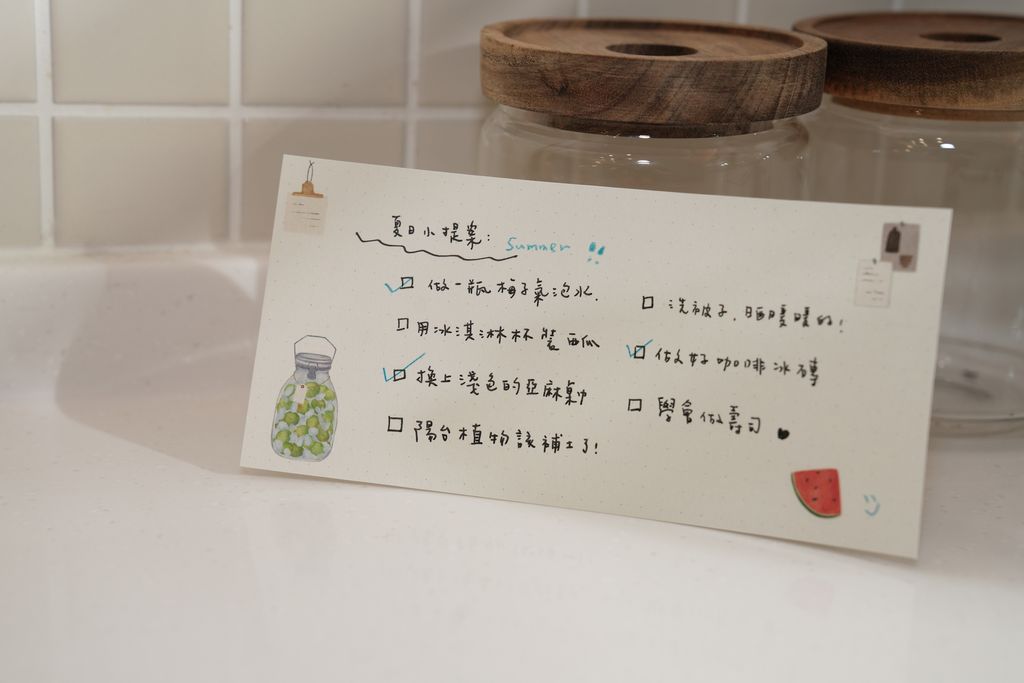 夏日小提案: Summer !!
做一瓶梅子氣泡水.
用冰淇淋杯裝西瓜
換上淺色的亞麻桌巾
陽台植物該補土了!
洗被子,晒暖暖的!
做好咖啡冰磚
學會做壽司